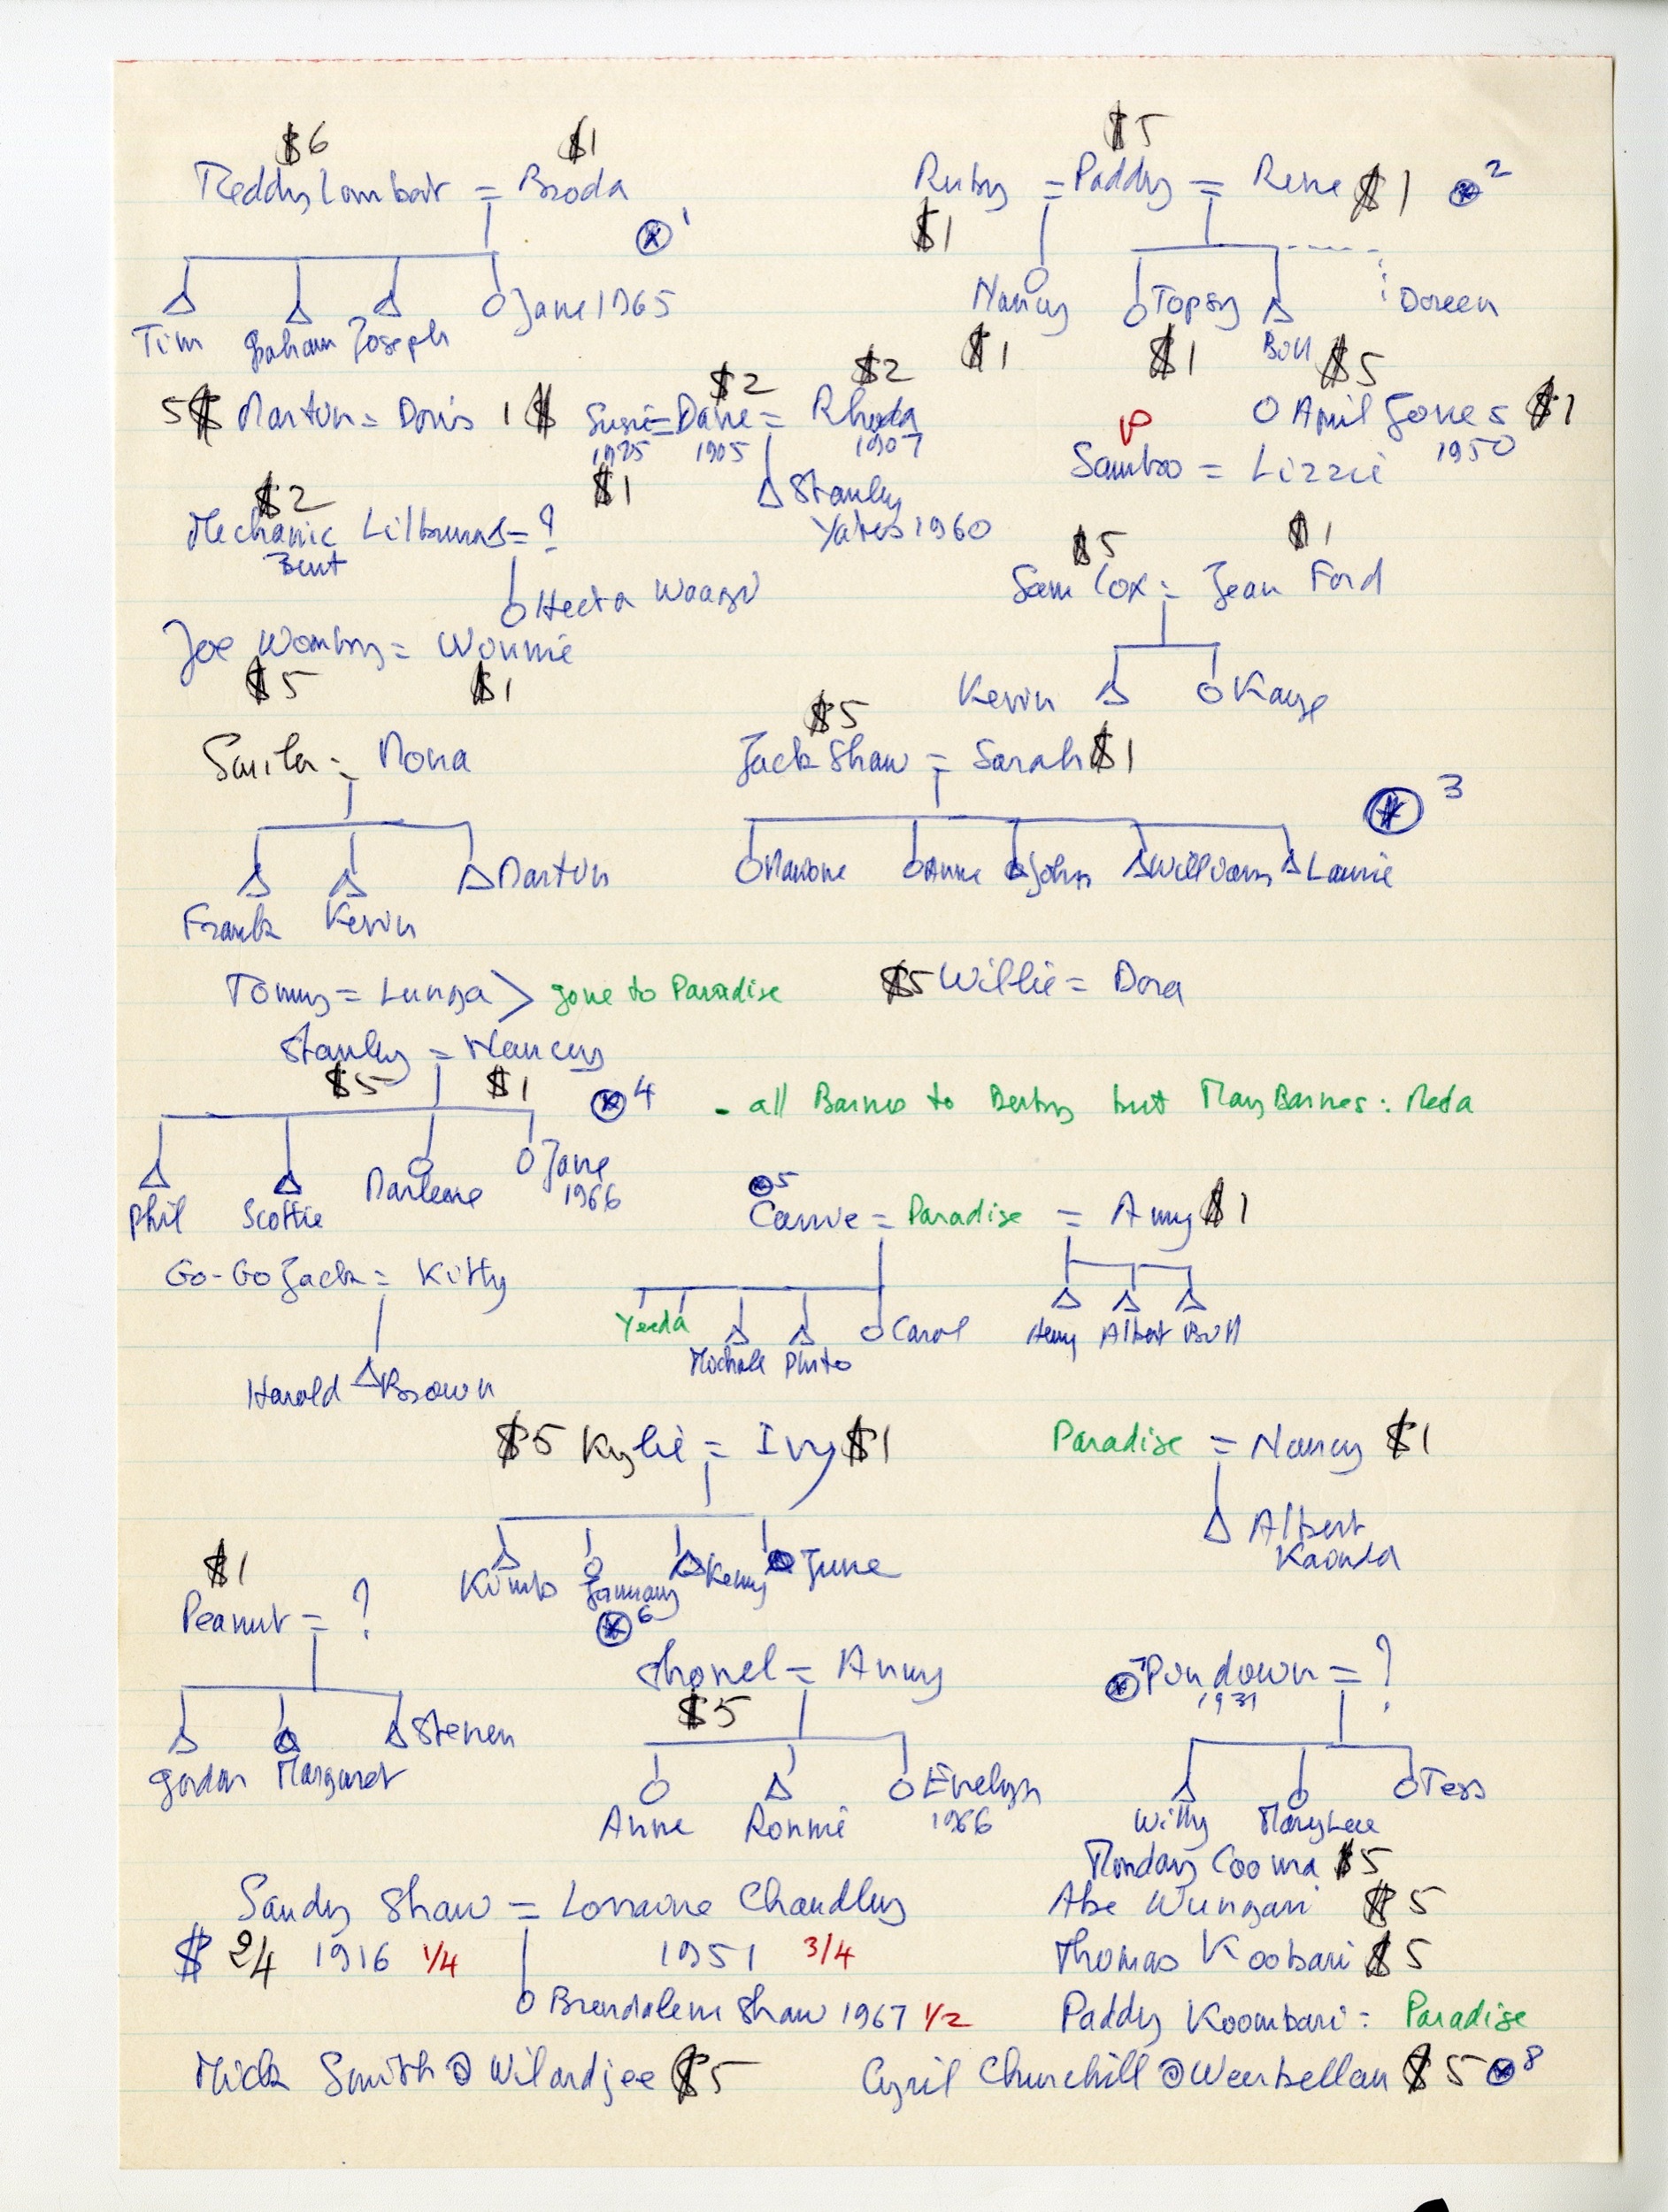 $6 $1 $5
Teddy Lambart = Broda
Ruby = Paddy = Rene $1 2
$1
1
Tim Graham Joseph Jane 1965
Nancy Topsy Bill Doreen
$1 $1 $5
5$ Martin = Doris 1$
$2 $2
Susie = Dave = Rhoda
1925 1905 1907
$1
Stanley
Yates 1960
April Jones $1
1950
Sambo = Lizzie
$2
Mechanic Lilburns = ?
Bent
Hecta Waagi
$5 $1
Sam Cox = Jean Ford
Kevin Kaye
Joe Womby = Winnie
$5 $1
Smiler = Mona
Frank Kevin Martin
$5
Jack Shaw = Sarah $1
3
Anne John William Laurie
Tommy = Lunga > gone to Paradise
$5 Willie = Dora
Stanley = Nancy
$5 $1 4
- all Barnes to Derby but May Barnes: Meda
Phil Scottie Marlene Jane
1966
5
Carrie = Paradise = Amy $1
Yeeda
Michale Pluto Carol
Henry Albert Bill
Go-Go Jack = Kitty
Harold Brown
$5 Kylie = Ivy $1
Paradise = Nancy $1
Albert
Kaonda
Kimb Kenny June
6
$1
Peanut = ?
Gordon Margaret Steven
Thonel = Anny
$5
Anne Ronnie Evelyn
1966
7 Pundown = ?
1931
Willy MaryLee Tess
Monday Cooma $5
Abe Wungari $5
Thomas Koobari $5
Paddy Koombari: Paradise
Sandy Shaw = Lorraine Chandley
$ 2/4 1916 1/4 1951 3/4
Brendalem Shaw 1967 1/2
Mick Smith @ Wilardjee $5
Cyril Churchill @ Weerbellan $5 8